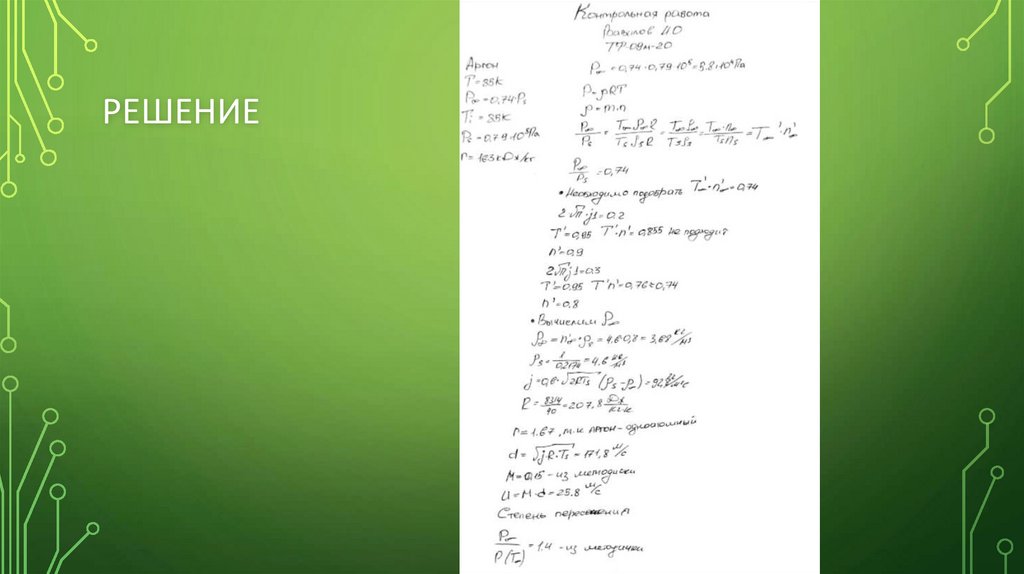 РЕШЕНИЕ
Контрольная работа
ТФ-09м-20
Аргон
T = 85К
P∞ = 0,74·Ps
Ti = 85К
Ps = 0.79·10⁵Па
r = 163 кДж/кг
P∞ = 0,74·0,79·10⁵ = 5.8·10⁴Па
P = ρRT
ρ = m.n
P∞/Ps = T∞ρ∞R/TsρsR = T∞ρ∞/Tsρs = T∞·n∞/Tsns = T∞'·n∞'
P∞/Ps = 0,74
• Необходимо подобрать T∞'·n∞' = 0,74
2√π·j1 = 0.2
T' = 0,95 T'·n' = 0,855 не подходит
n' = 0,9
2√π j1 = 0.3
T' = 0.95 T'n' = 0,76 ≈ 0,74
n' = 0.8
• Вычислим ρ∞
ρ∞ = n∞'·ρs = 4.6·0,8 = 3,68 кг/м3
ρs = 1/0,2174 = 4.6 кг/м3
j = 0,6·√2RTs (ρs-ρ∞) = 92
R = 8314/40 = 207,8 Дж/кг·К
r = 1.67, т.к аргон - одноатомный
d = √j·R·Ts = 171,8 м/с
M = 0,15 - из методички
U = M·d = 25.8 м/с
Степень пересыщения
P∞/P(T∞) = 1.4 - из методички